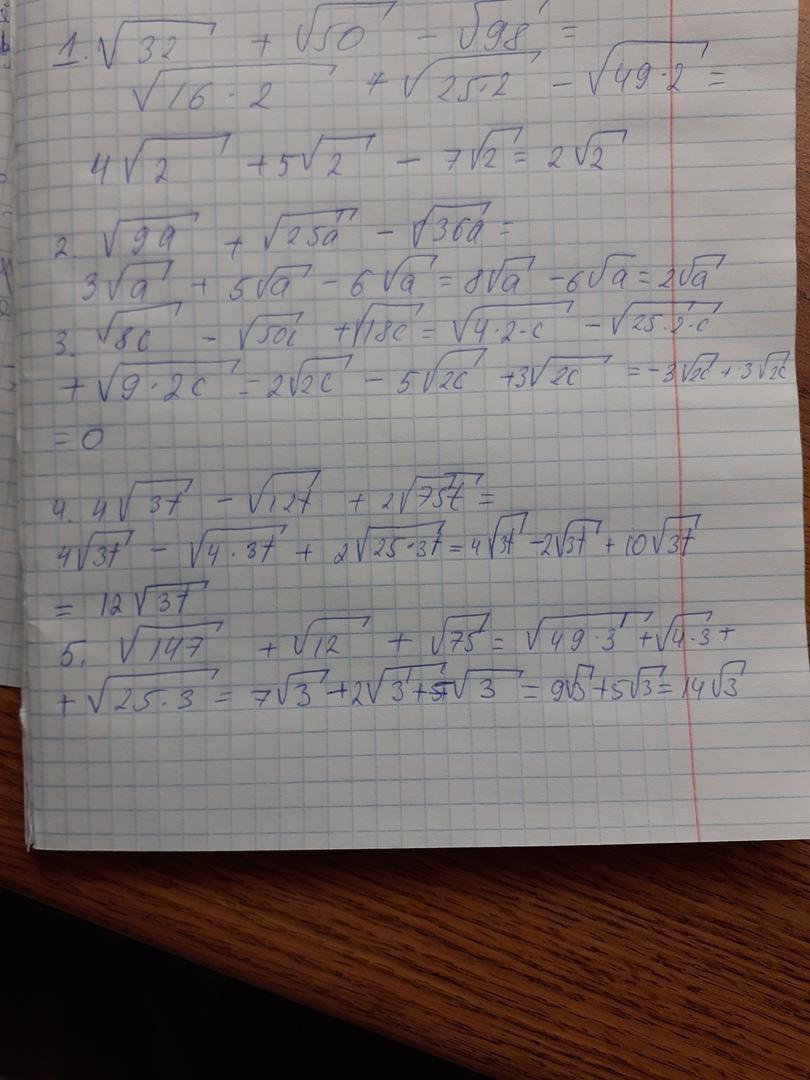 1. √32 + √50 - √98 =
√16·2 + √25·2 - √49·2 =
4√2 + 5√2 - 7√2 = 2√2
2. √9a + √25a - √36a =
3√a + 5√a - 6√a = 8√a - 6√a = 2√a
3. √8c - √50c + √18c = √4·2·c - √25·2·c
+ √9·2c = 2√2c - 5√2c + 3√2c = -3√2c + 3√2c
= 0
4. 4√3t - √12t + 2√75t =
4√3t - √4·3t + 2√25·3t = 4√3t - 2√3t + 10√3t
= 12√3t
5. √147 + √12 + √75 = √49·3 + √4·3 +
+ √25·3 = 7√3 + 2√3 + 5√3 = 9√3 + 5√3 = 14√3